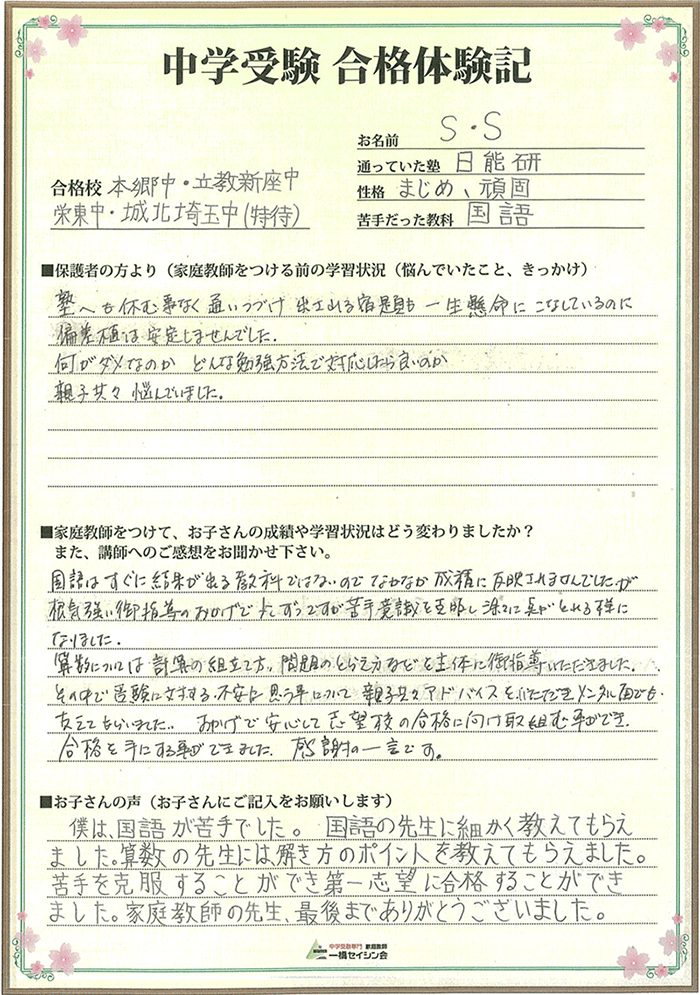 中学受験 合格体験記
お名前 S・S
通っていた塾 日能研
合格校 本郷中・立教新座中
性格 まじめ、頑固
栄東中・城北埼玉中(特待)
苦手だった教科 国語
■保護者の方より（家庭教師をつける前の学習状況（悩んでいたこと、きっかけ）
塾へも休む事なく通いつづけ 出される宿題も 一生懸命に こなしているのに
偏差値は安定しませんでした。
何がダメなのか どんな勉強方法で対応したら良いのか
親子共々 悩んでいました。
■家庭教師をつけて、お子さんの成績や学習状況はどう変わりましたか？
また、講師へのご感想をお聞かせ下さい。
国語は すぐに 結果が出る教科ではないので なかなか 成績に 反映されませんでしたが
根気強い御指導のおかげで 少しずつですが苦手意識を克服し 徐々に 点がとれる様に
なりました。
算数については 計算の組立て方、問題のとらえ方などを主体に御指導いただきました。
その中で受験に対する不安に思う事について 親子共々アドバイスをいただきメンタル面でも
支えてもらいました。 おかげで安心して 志望校の合格に向け取組む事ができ
合格を手にする事ができました。 感謝の一言です。
■お子さんの声（お子さんにご記入をお願いします）
僕は、国語が苦手でした。 国語の先生に細かく教えてもらえ
ました。算数の先生には、解き方のポイントを教えてもらえました。
苦手を克服することができ第一志望に合格することができ
ました。家庭教師の先生、最後までありがとうございました。
中学受験専門 家庭教師
一橋セイシン会